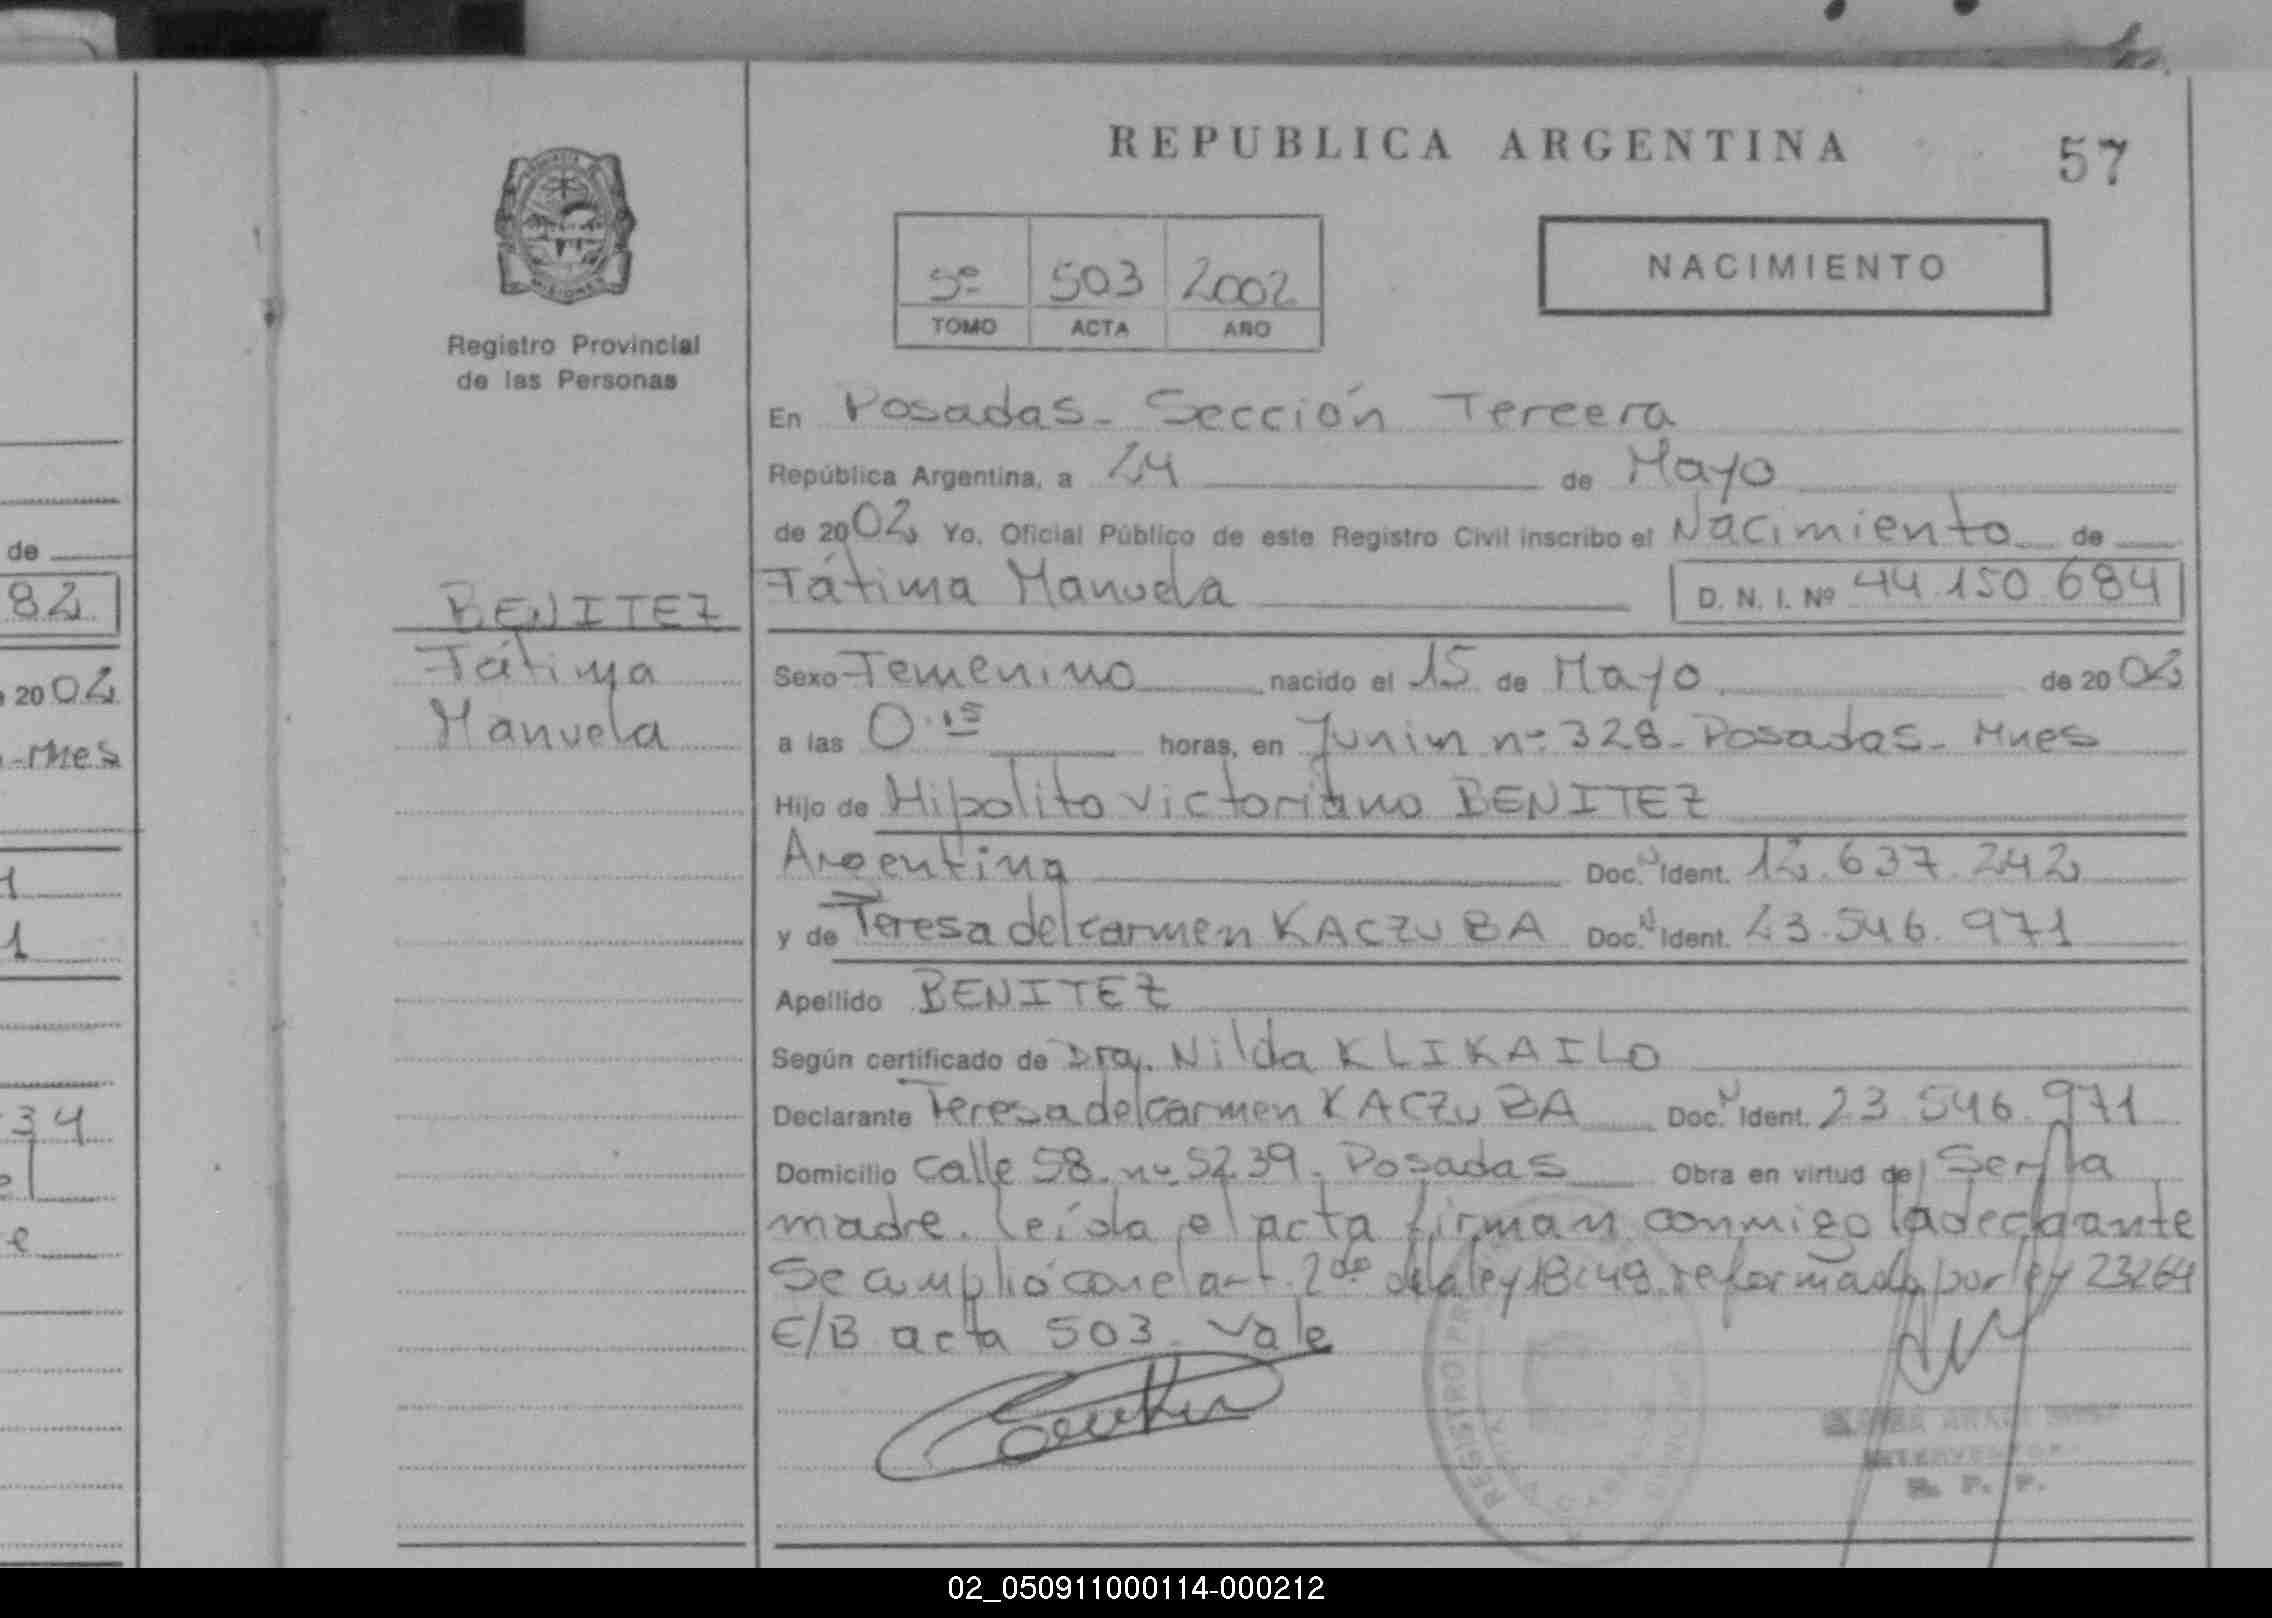 REPUBLICA ARGENTINA
57
5º 503 2002
TOMO ACTA AÑO
NACIMIENTO
MISIONES
Registro Provincial
de las Personas
En Posadas - Sección Tercera
República Argentina, a 24 de Mayo
de 2002 Yo, Oficial Público de este Registro Civil inscribo el Nacimiento de
Fátima Manuela D. N. I. Nº 44.150.684
BENITEZ
Fátima
Manuela
Sexo Femenino nacido el 15 de Mayo de 2002
a las 0.15 horas, en Junin nº 328 - Posadas - Mnes
Hijo de Hipolito Victoriano BENITEZ
Argentina Doc. N Ident. 12.637.242
y de Teresa del carmen KACZUBA Doc. N Ident. 23.546.971
Apellido BENITEZ
Según certificado de Dra. Nilda KLIKAILO
Declarante Teresa del carmen KACZUBA Doc. N Ident. 23.546.971
Domicilio calle 58 nº 5239. Posadas Obra en virtud de Ser la
madre. leída el acta firman conmigo la declarante
Se amplió con el art. 2do de la ley 18248 reformado por ley 23264
E/B acta 503. Vale
REGISTRO
INTERVENTOR
R. P. P.
de
82
2002
-Mnes
1
1
34
el
e
02_050911000114-000212